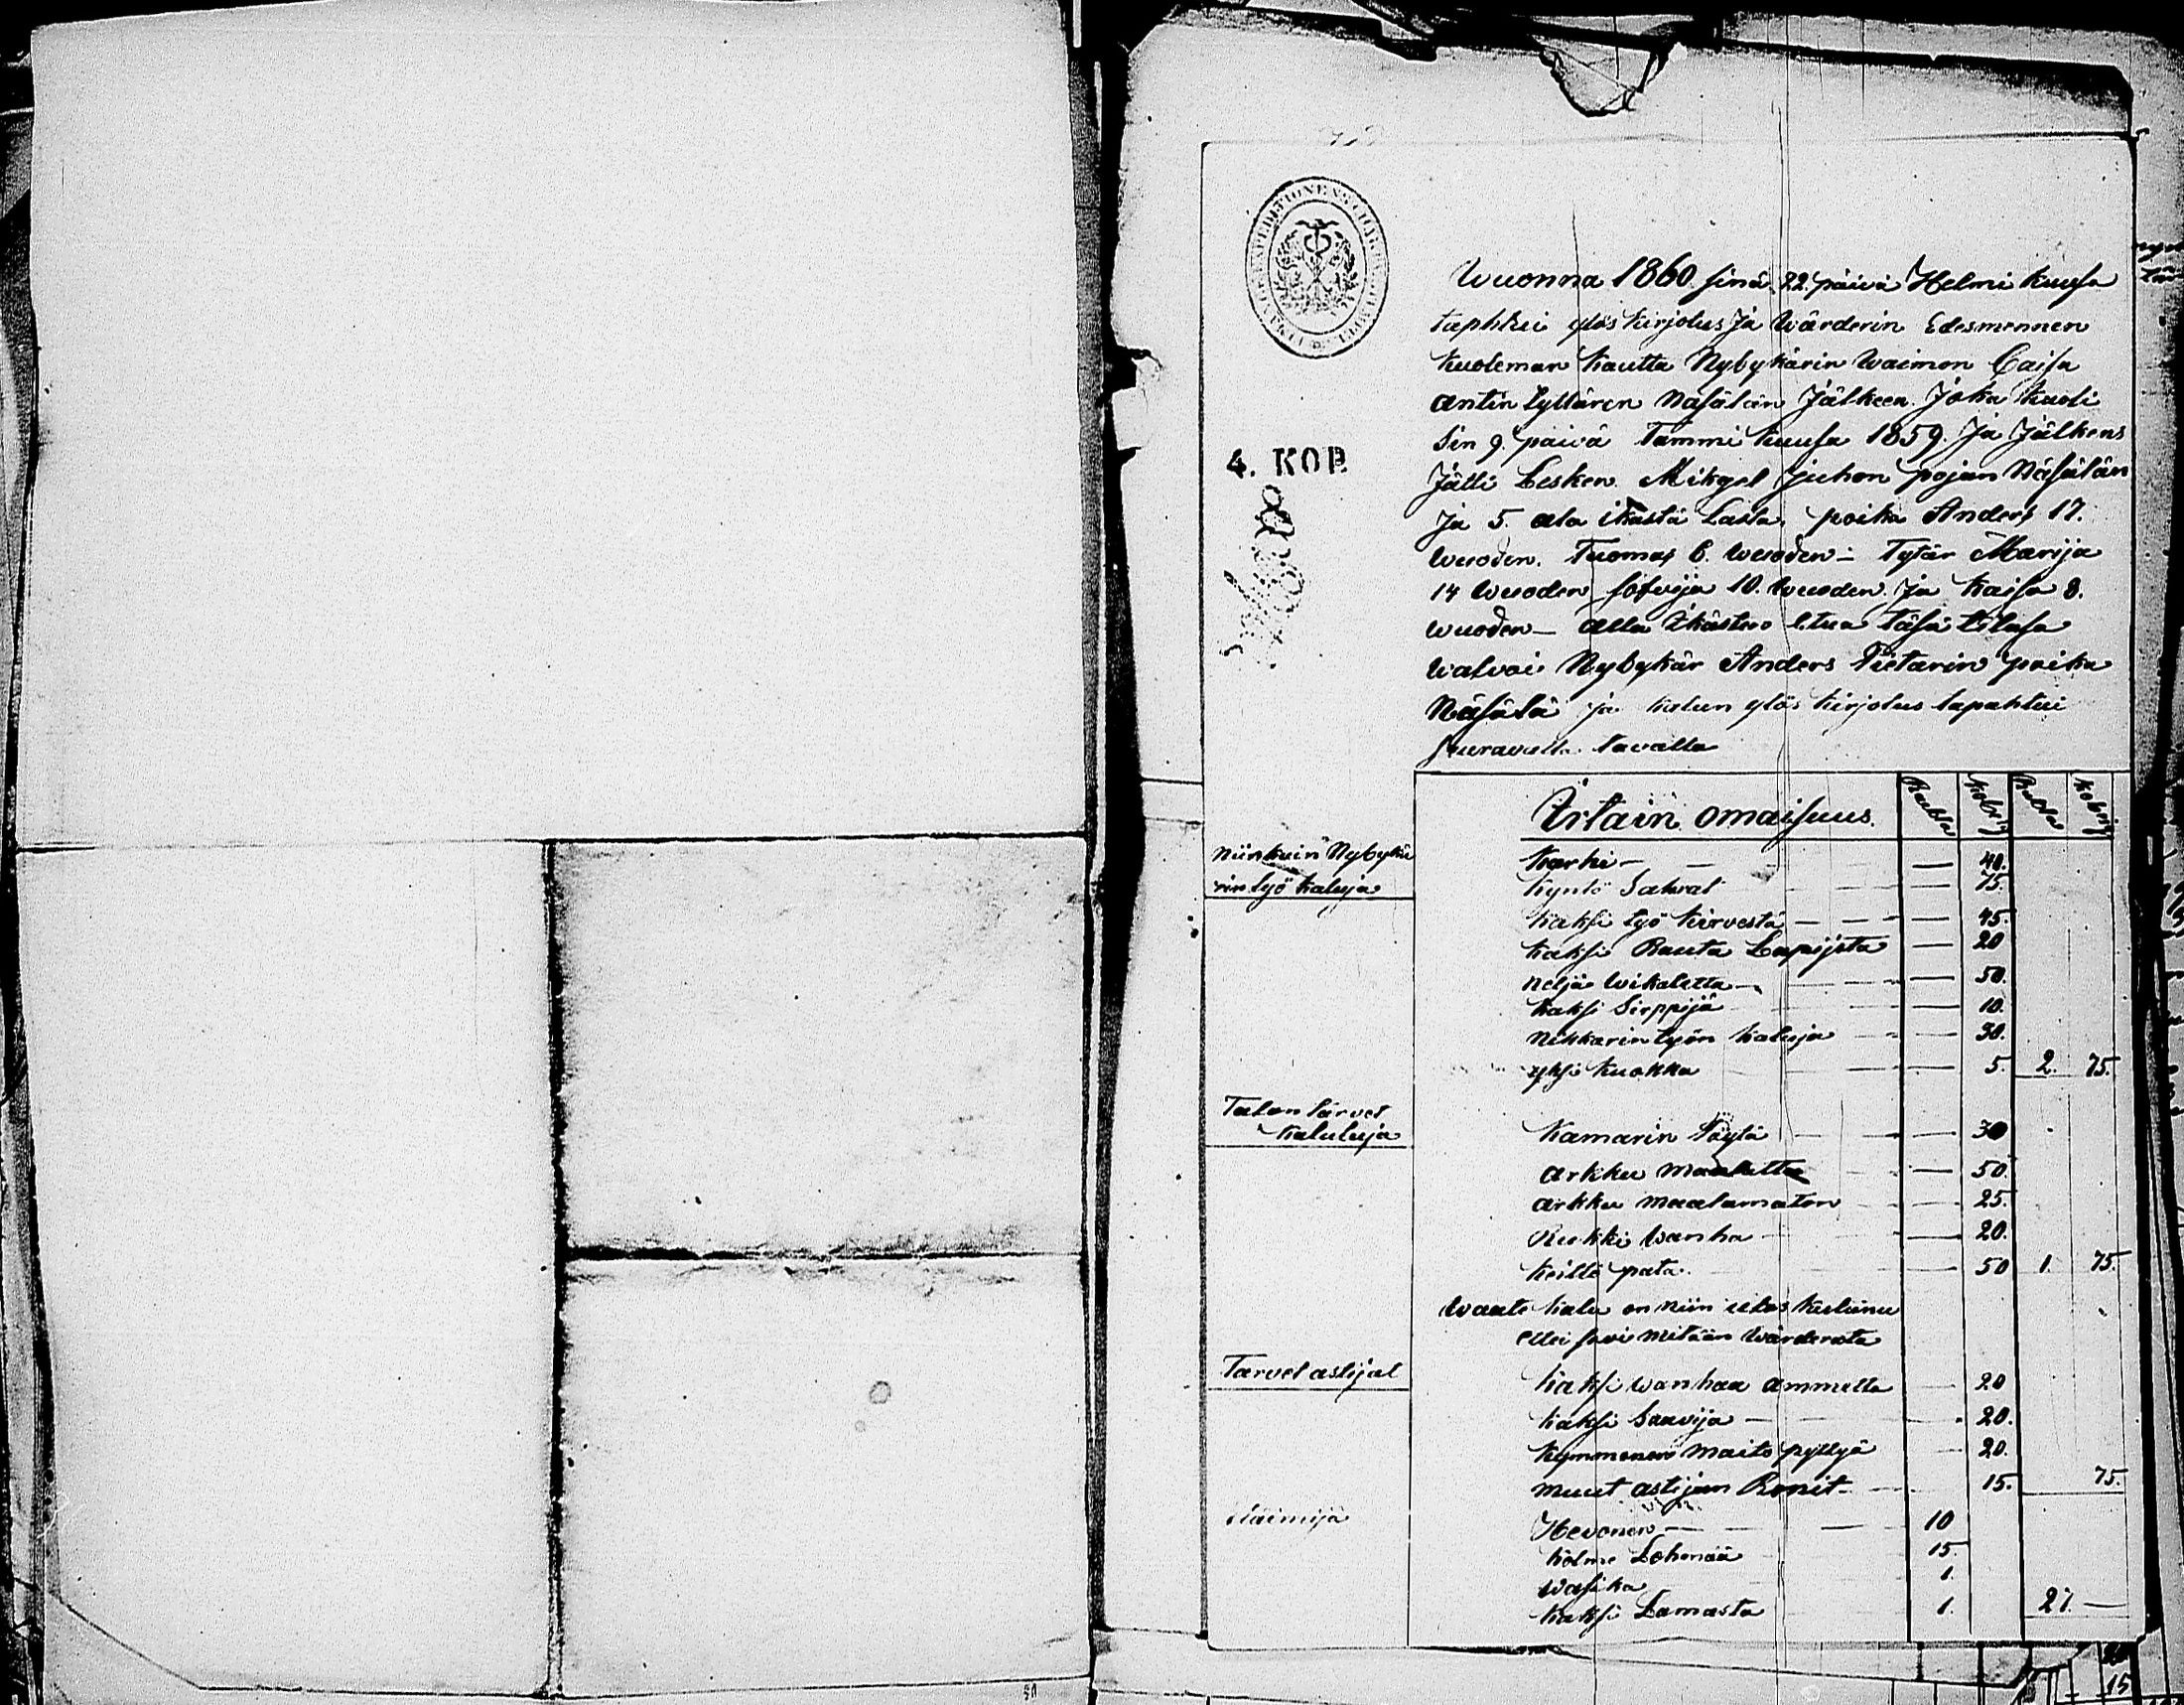 4. KOP.
Wuonna 1860 sinä 22 päivä Helmi kuusa
taphtui ylös kirjotus Ja Wärderin Edesmennen
kuoleman kautta Nybykärin Waimon Caisa
Antin tyttären Näsälän Jälkeen. Joka kuoli
Sin 9. päivä Tammi kuusa 1859. Ja Jälkens
Jätti Lesken Mikgel Juhon pojan Näsälän
Ja 5. ala ikästä Lasta, poika Anders 17.
wuoden. Tuomas 6. wuoden – Tytär Marija
14 Wuoden sofvija 10. wuoden. Ja Kaisa 8.
wuoden – alla
Walvoi Nybykär Anders Pietarin poika
Näsälä ja kalun ylös kirjotus tapahtui
seuravalla tavalla
Irtain omaisuus. Rubla kobeg Rubla kobeg
Niinkuin Nybykä
rin työ kaluja
Karhi – – 40.
Kyntö Sahrat – 75.
kaksi työ kirvestä – 45.
kaksi Rauta Lapijota – 20
neljä wikatetta – 50.
kaksi Sirppijä – 10.
Nikkarin työn kaluja – 30.
yksi kuokka – 5. 2. 75.
Talon tarvet
kaluluja
Kamarin Pöytä – 30
arkku maalattu – 50.
arkku maalamaton – 25.
Rukki Wanha – 20.
keitto pata. 50 1. 75.
Waate kalu on niin ulos kulunu
ettei sovi mitään Wärderata
Tarvet astijat
kaksi wanhaa ammetta – 20
kaksi Saavija – 20.
kymmenen maito pyttyä – 20.
muut astijan Ronit – 15. 75.
Eläimijä
Hevonen – 10
kolme Lehmää 15.
Wasika 1.
kaksi Lamasta 1. 27. –